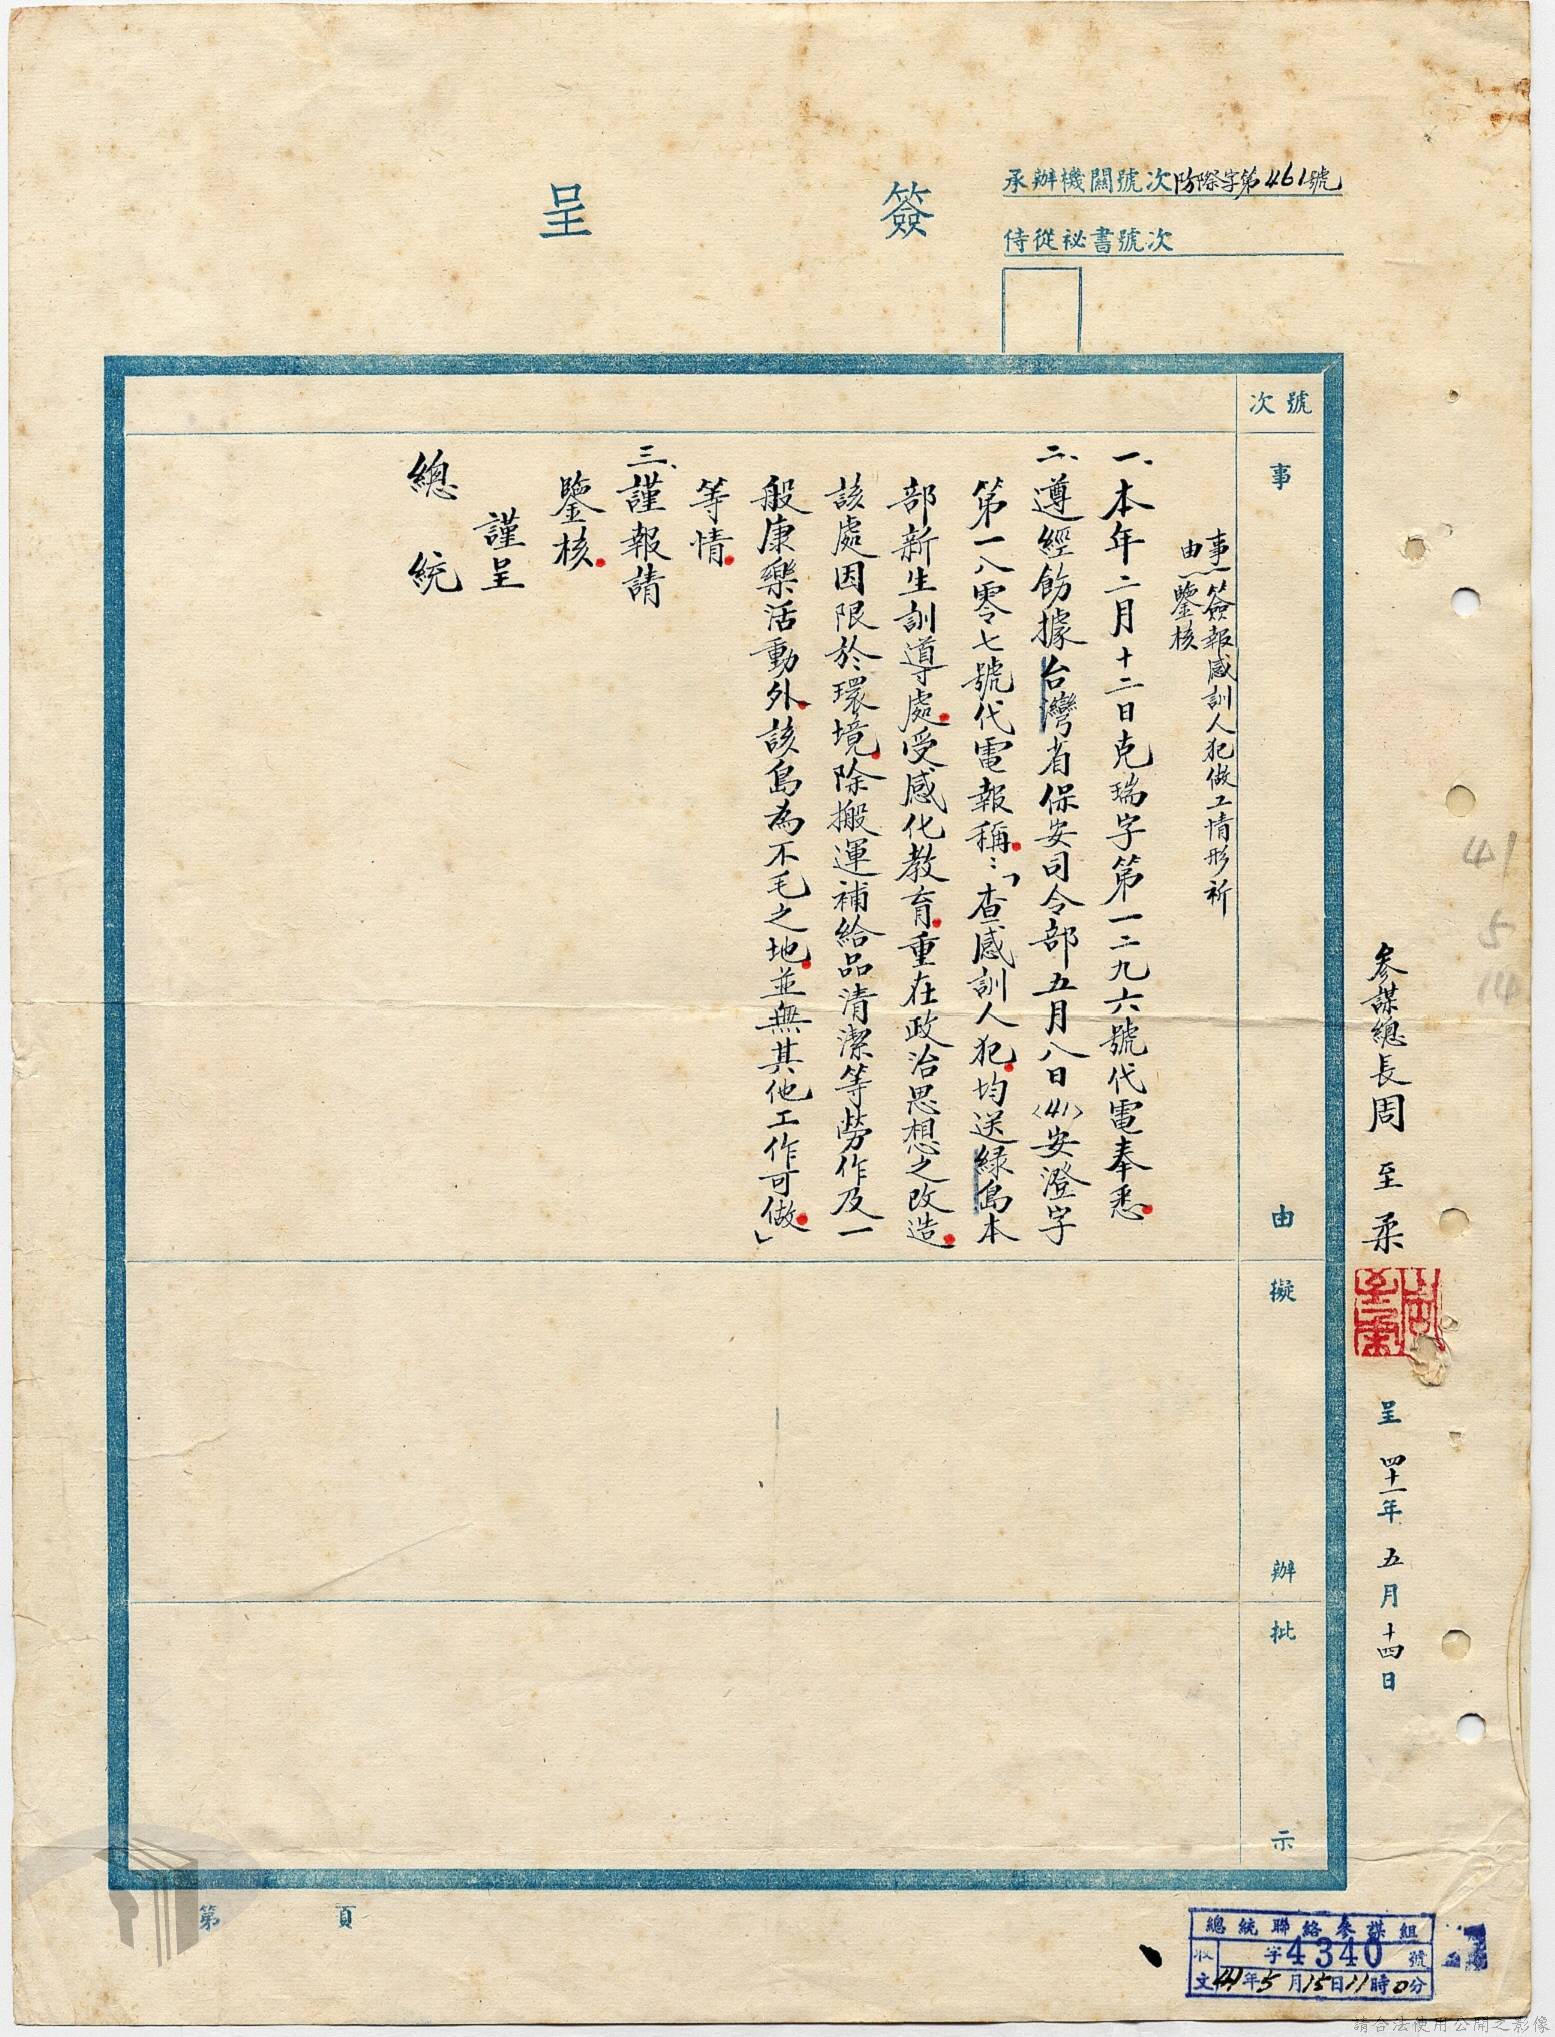 承辦機關號次防際字第461號
侍從祕書號次
簽呈
參謀總長周至柔
周至柔
呈 四十一年五月十四日
41
5
14
號次
事由
擬辦
批示
事由 簽報感訓人犯做工情形祈
鑒核
一、本年二月十二日克瑞字第一二九六號代電奉悉
二、遵經飭據台灣省保安司令部五月八日〈41〉安澄字
第一八零七號代電報稱：「查感訓人犯均送綠島本
部新生訓導處受感化教育重在政治思想之改造
該處因限於環境除搬運補給品清潔等勞作及一
般康樂活動外該島為不毛之地並無其他工作可做」
等情
三、謹報請
鑒核
謹呈
總統
第 頁
總統聯絡參謀組
收文 字4340號
41年5月15日11時0分
請合法使用公開之影像